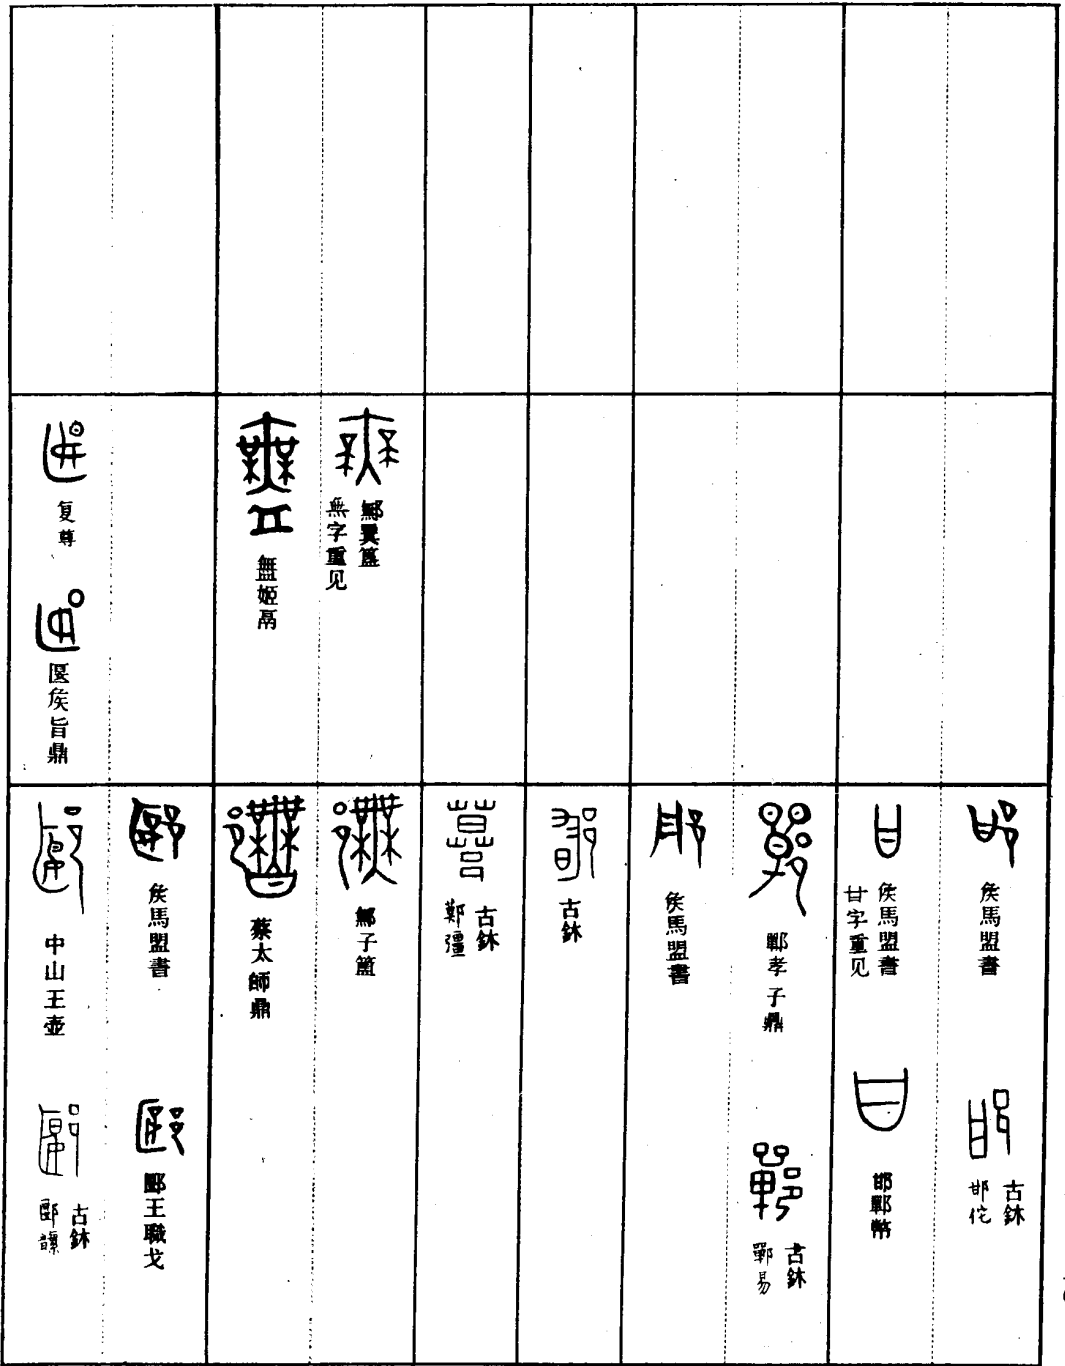 矦馬盟書
古鉨
邯佗
矦馬盟書
甘字重见
邯鄲幣
鄲孝子鼎
古鉨
鄲易
矦馬盟書
古鉨
古鉨
彊
鄦㠱簋
無字重见
鄦子簠
無姬鬲
蔡太師鼎
矦馬盟書
郾王職戈
复尊
匽矦旨鼎
中山王壺
古鉨
郾